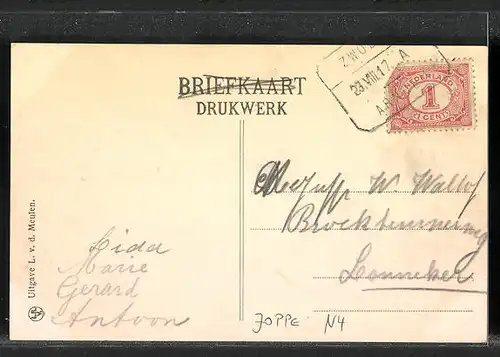 BRIEFKAART
DRUKWERK
ZWO
23.VIII.17
A
NEDERLAND
1
1 CENT
Uitgave L. v. d. Meulen.
Lida
Marie
Gerard
Antoon
Mejuff W.
Lonneker
JOPPE N4